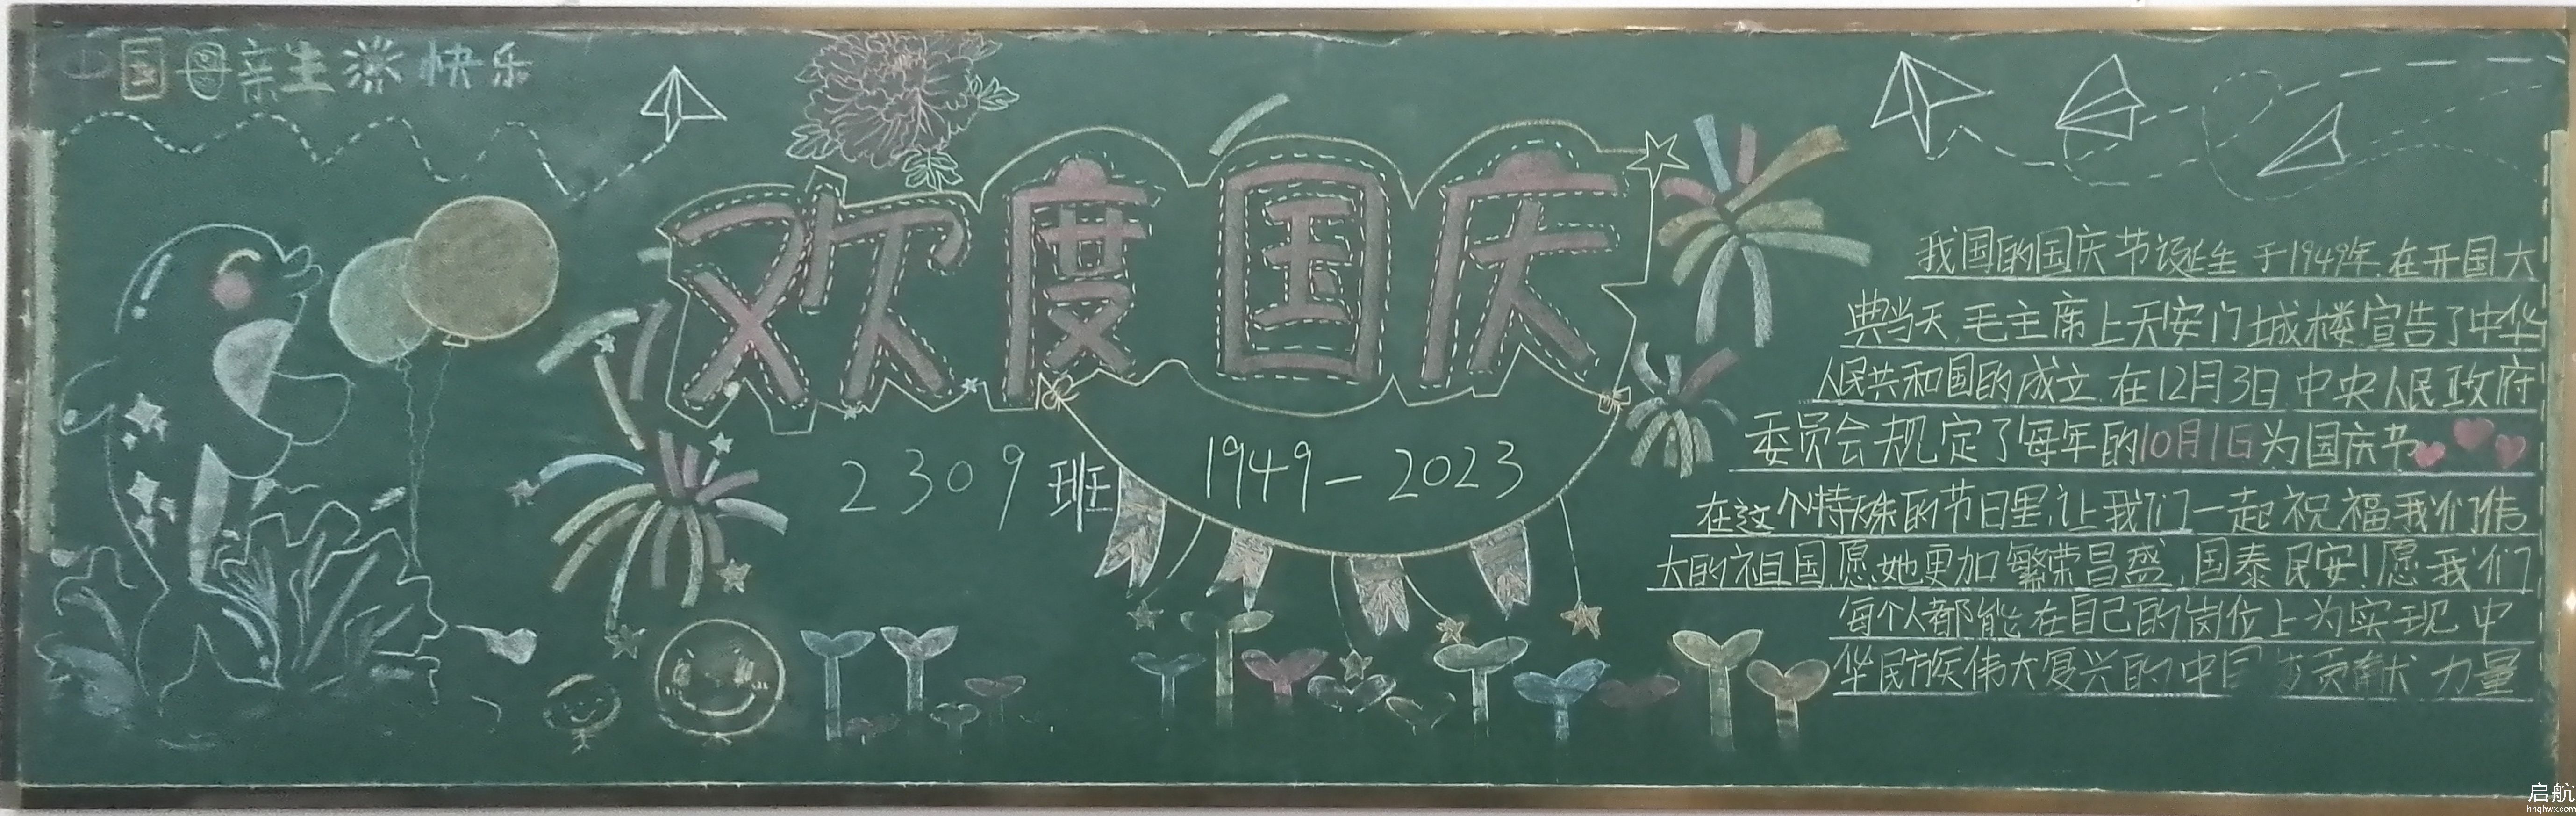 中国母亲生快乐
欢度国庆
2309班
1949-2023
我国的国庆节诞生于1949年,在开国大
典当天,毛主席上天安门城楼宣告了中华
人民共和国的成立,在12月3日中央人民政府
委员会规定了每年的10月1日为国庆节
在这个特殊的节日里,让我们一起祝福我们伟
大的祖国,愿她更加繁荣昌盛,国泰民安!愿我们
每个人都能在自己的岗位上为实现中
华民族伟大复兴的中国贡献力量
启航
hhqhwx.com